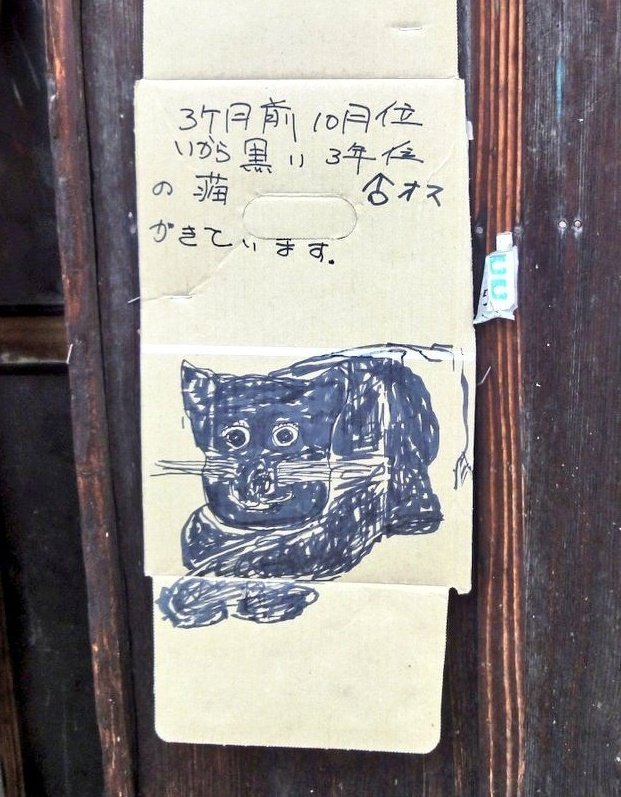 3ケ月前 10月位
いから黒い 3年位
の 猫 オス
がきています.